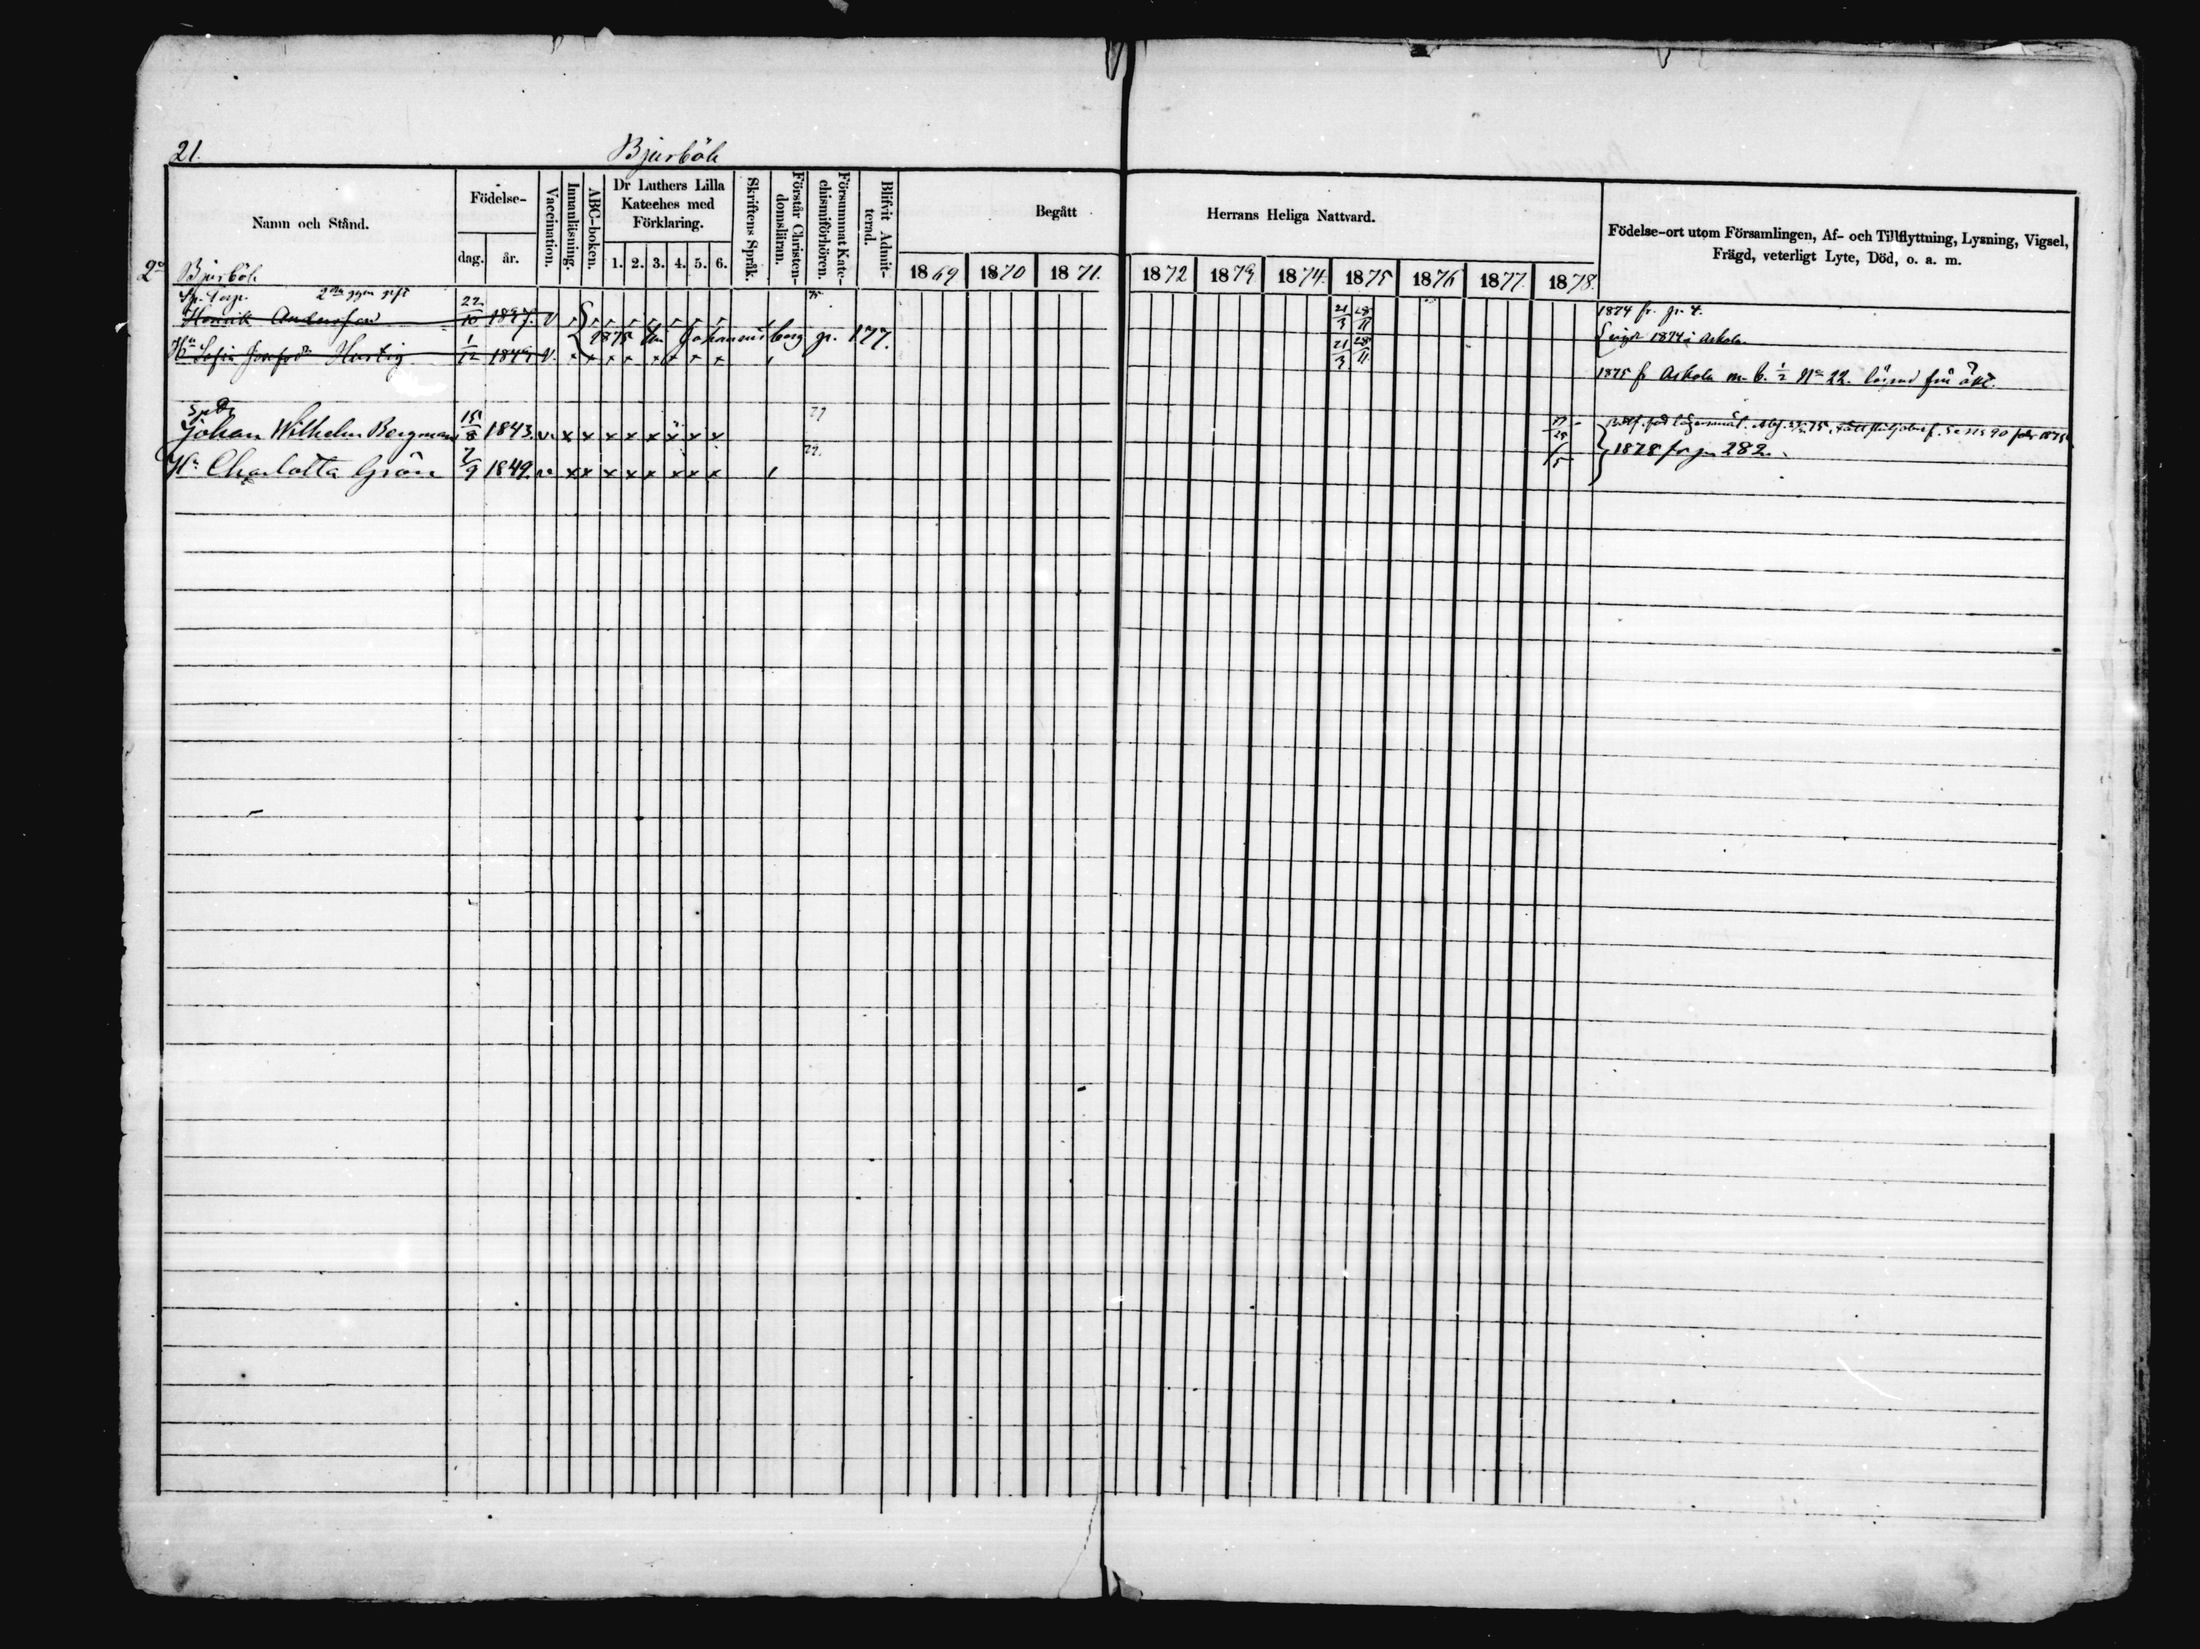 21.
Bjurböle
Namn och Stånd.
Födelse-
dag.
år.
Vaccination.
Innanläsning.
ABC-boken.
Dr Luthers Lilla
Kateches med
Förklaring.
1. 2. 3. 4. 5. 6.
Skriftens Språk.
Förstår Christen-
domsläran.
Försummat Kate-
chismiförhören.
Blifvit Admit-
terad.
Begått Herrans Heliga Nattvard.
1869 1870 1871. 1872 1873 1874. 1875 1876 1877. 1878.
Födelse-ort utom Församlingen, Af- och Tillflyttning, Lysning, Vigsel,
Frägd, veterligt Lyte, Död, o. a. m.
2o Bjurböle
Sp. Torp. 2dra gift 22 75 21 28 1874 fr. 4.
Henrik Andersson 10 1847. V 3 11
1875 Johannisberg p. 177.
Hu Sofia Hurtig 1/12 1849 V. x x x x x x x 21/3 28/11 vigde 1874 i Askola
1875 fr Askola m. b. 1/2 No 22.
77
Johan Wilhelm Bergman 15/8 1843. v. x x x x x x x x
Hu Charlotta Grön 7/9 1849. v. x x x x x x x x 1878 fr p. 282.